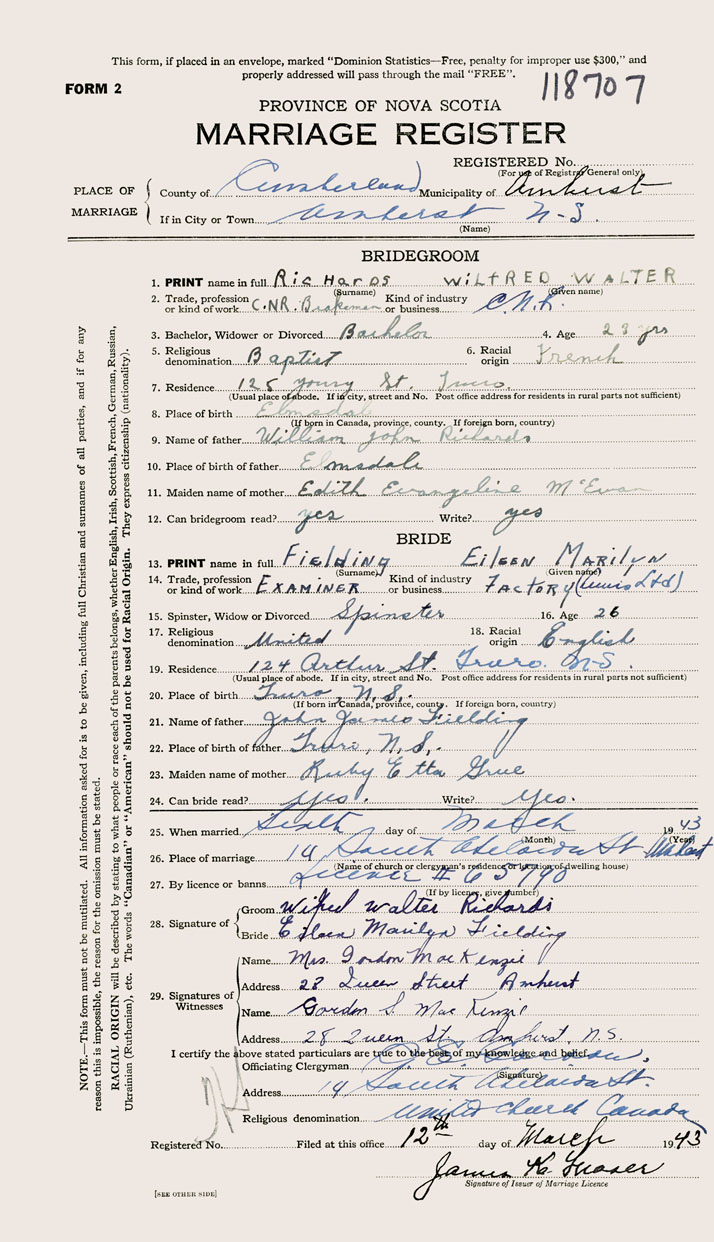 This form, if placed in an envelope, marked "Dominion Statistics—Free, penalty for improper use $300," and
properly addressed will pass through the mail "FREE".
FORM 2
118707
PROVINCE OF NOVA SCOTIA
MARRIAGE REGISTER
REGISTERED No.
(For use of Registrar General only)
PLACE OF MARRIAGE
County of Cumberland Municipality of Amherst
If in City or Town Amherst N-S.
(Name)
BRIDEGROOM
1. PRINT name in full Richards WILFRED WALTER
(Surname) (Given name)
2. Trade, profession or kind of work C.N.R. Brakeman Kind of industry or business C.N.R.
3. Bachelor, Widower or Divorced Bachelor 4. Age 23 yrs
5. Religious denomination Baptist 6. Racial origin French
7. Residence 125 young St. Truro.
(Usual place of abode. If in city, street and No. Post office address for residents in rural parts not sufficient)
8. Place of birth Elmsdale
(If born in Canada, province, county. If foreign born, country)
9. Name of father William John Richards
10. Place of birth of father Elmsdale
11. Maiden name of mother Edith Evangeline McEwan
12. Can bridegroom read? yes Write? yes
BRIDE
13. PRINT name in full Fielding Eileen Marilyn
(Surname) (Given name)
14. Trade, profession or kind of work EXAMINER Kind of industry or business FACTORY (Lewis Ltd)
15. Spinster, Widow or Divorced Spinster 16. Age 26
17. Religious denomination United 18. Racial origin English
19. Residence 124 Arthur St. Truro. N-S.
(Usual place of abode. If in city, street and No. Post office address for residents in rural parts not sufficient)
20. Place of birth Truro, N.S.
(If born in Canada, province, county. If foreign born, country)
21. Name of father John James Fielding
22. Place of birth of father Truro, N.S.
23. Maiden name of mother Ruby Etta Grue
24. Can bride read? yes. Write? yes.
25. When married day of March 1943
(Month) (Year)
26. Place of marriage 14 South Adelaide St Amherst
(Name of church or clergyman's residence or location of dwelling house)
27. By licence or banns Licence # 65990
(If by licence, give number)
28. Signature of
Groom Wilfred Walter Richards
Bride Eileen Marilyn Fielding
29. Signatures of Witnesses
Name Mrs. Gordon MacKenzie
Address 28 Queen Street Amherst
Name Gordon S. MacKenzie
Address 28 Queen St. Amherst, N.S.
I certify the above stated particulars are true to the best of my knowledge and belief.
Officiating Clergyman
(Signature)
Address 14 South Adelaide St.
Religious denomination United Church Canada
Registered No. Filed at this office 12th day of March 1943
James K. Fraser
Signature of Issuer of Marriage Licence
[SEE OTHER SIDE]
NOTE.—This form must not be mutilated. All information asked for is to be given, including full Christian and surnames of all parties, and if for any
reason this is impossible, the reason for the omission must be stated.
RACIAL ORIGIN will be described by stating to what people or race each of the parents belongs, whether English, Irish, Scottish, French, German, Russian,
Ukrainian (Ruthenian), etc. The words "Canadian" or "American" should not be used for Racial Origin. They express citizenship (nationality).